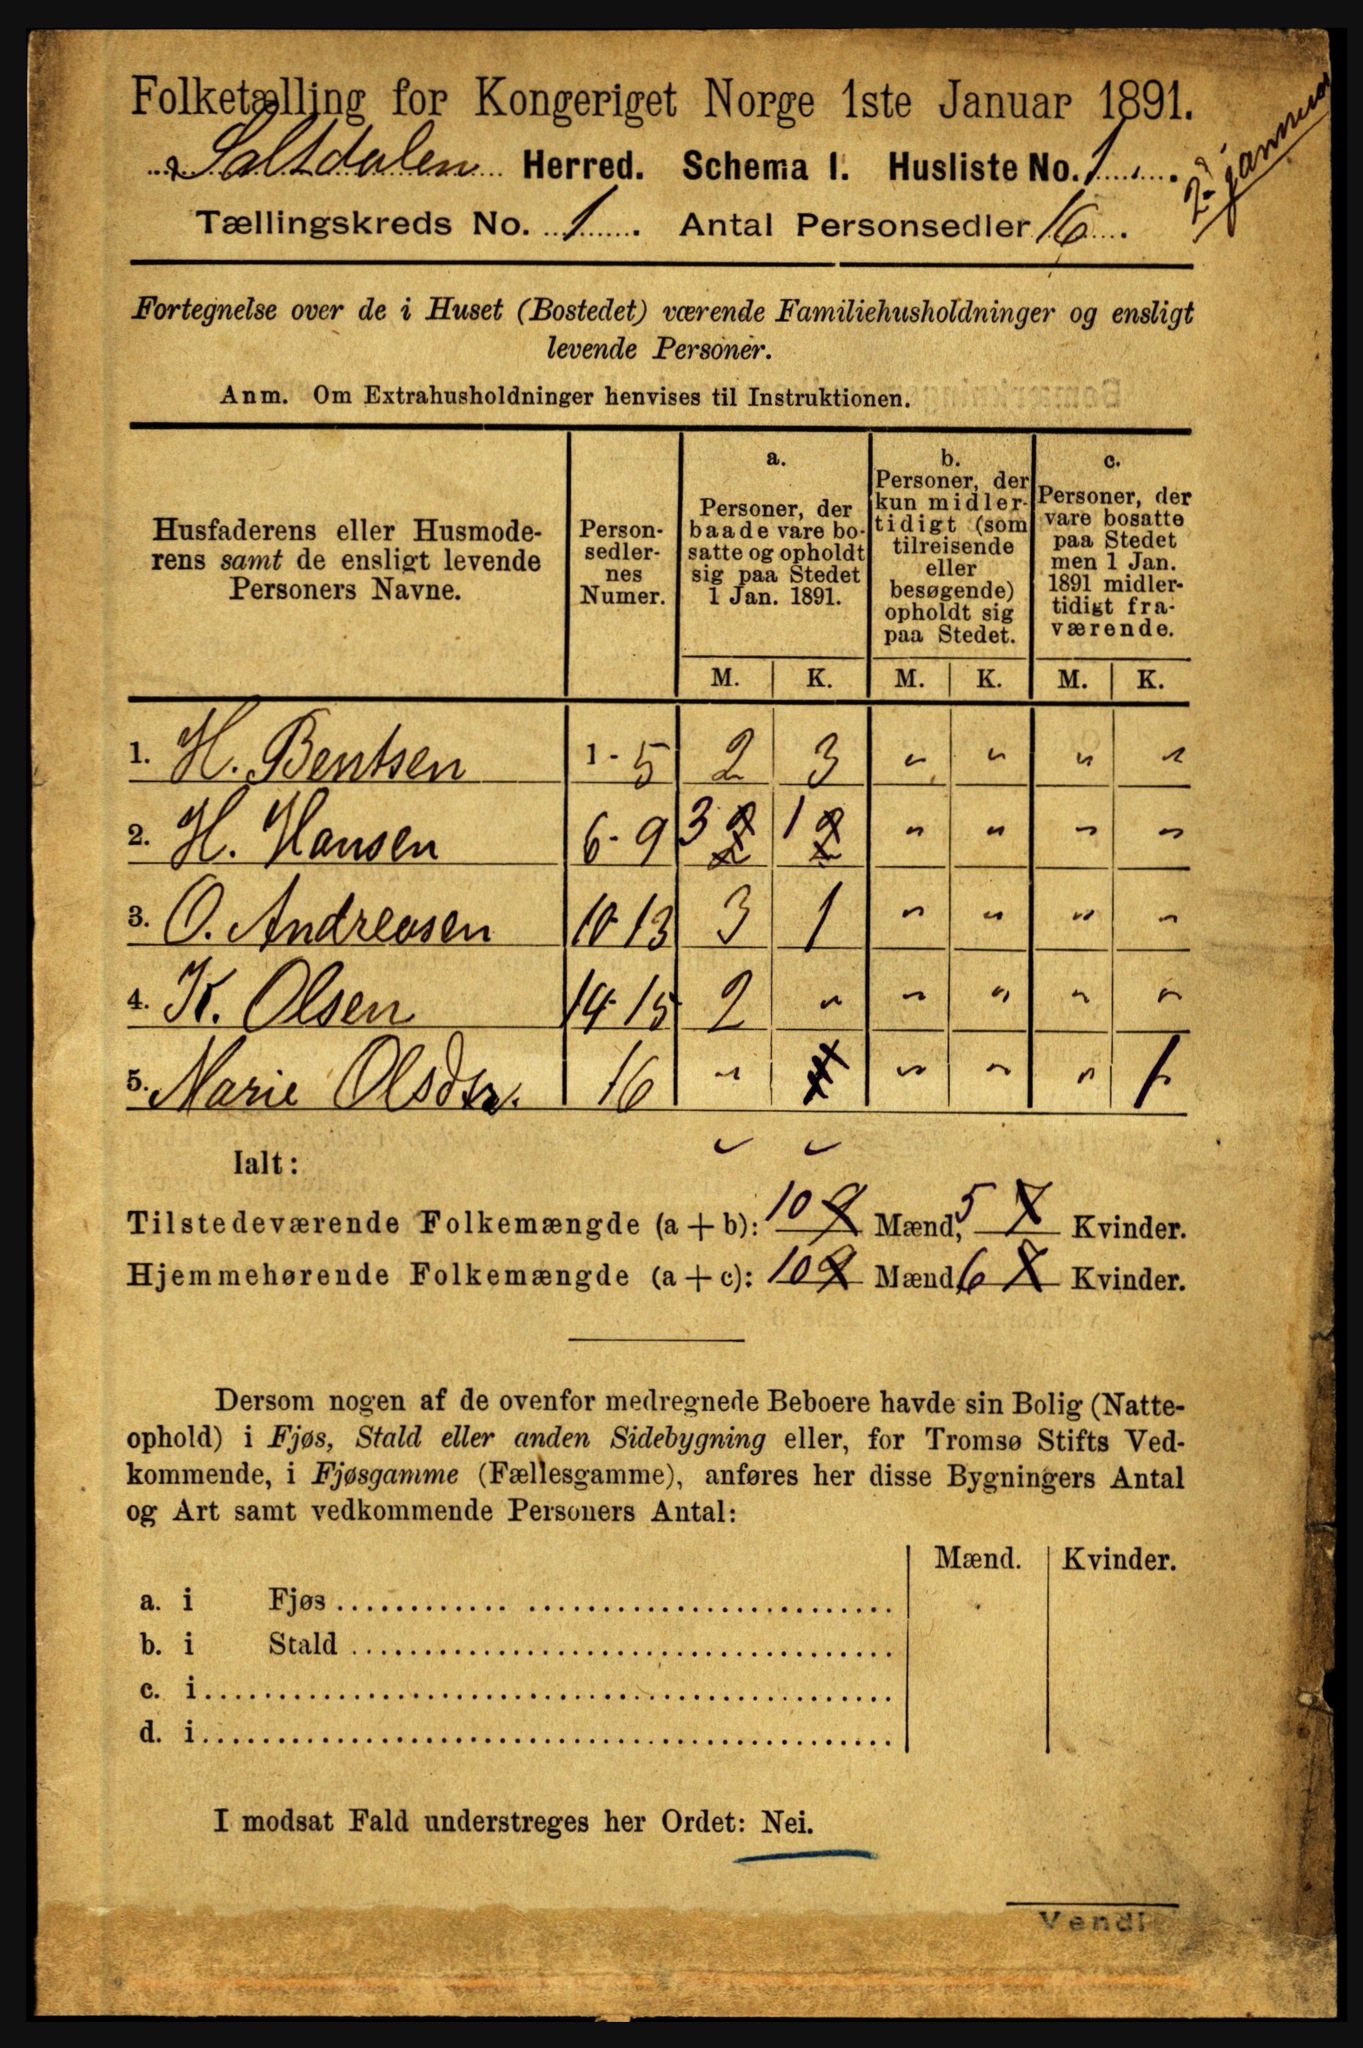 Folketælling for Kongeriget Norge 1ste Januar 1891.
2. januar
Saltdalen Herred. Schema I. Husliste No. 1.
Tællingskreds No. 1. Antal Personsedler 16.
Fortegnelse over de i Huset (Bostedet) værende Familiehusholdninger og ensligt
levende Personer.
Anm. Om Extrahusholdninger henvises til Instruktionen.
Husfaderens eller Husmode-
rens samt de ensligt levende
Personers Navne.
Person-
sedler-
nes
Numer.
a.
Personer, der
baade vare bo-
satte og opholdt
sig paa Stedet
1 Jan. 1891.
b.
Personer, der
kun midler-
tidigt (som
tilreisende
eller
besøgende)
opholdt sig
paa Stedet.
c.
Personer, der
vare bosatte
paa Stedet
men 1 Jan.
1891 midler-
tidigt fra-
værende.
M. K. M. K. M. K.
1. H. Bentsen 1-5 2 3 " " " "
2. H. Hansen 6-9 3 2 1 2 " " " "
3. O. Andreasen 10-13 3 1 " " " "
4. K. Olsen 14-15 2 " " " " "
5. Marie Olsdtr. 16 " 1 " " " 1
Ialt:
Tilstedeværende Folkemængde (a + b): 10 9 Mænd, 5 7 Kvinder.
Hjemmehørende Folkemængde (a + c): 10 9 Mænd 6 7 Kvinder.
Dersom nogen af de ovenfor medregnede Beboere havde sin Bolig (Natte-
ophold) i Fjøs, Stald eller anden Sidebygning eller, for Tromsø Stifts Ved-
kommende, i Fjøsgamme (Fællesgamme), anføres her disse Bygningers Antal
og Art samt vedkommende Personers Antal:
Mænd. Kvinder.
a. i Fjøs
b. i Stald
c. i
d. i
I modsat Fald understreges her Ordet: Nei.
Vend!